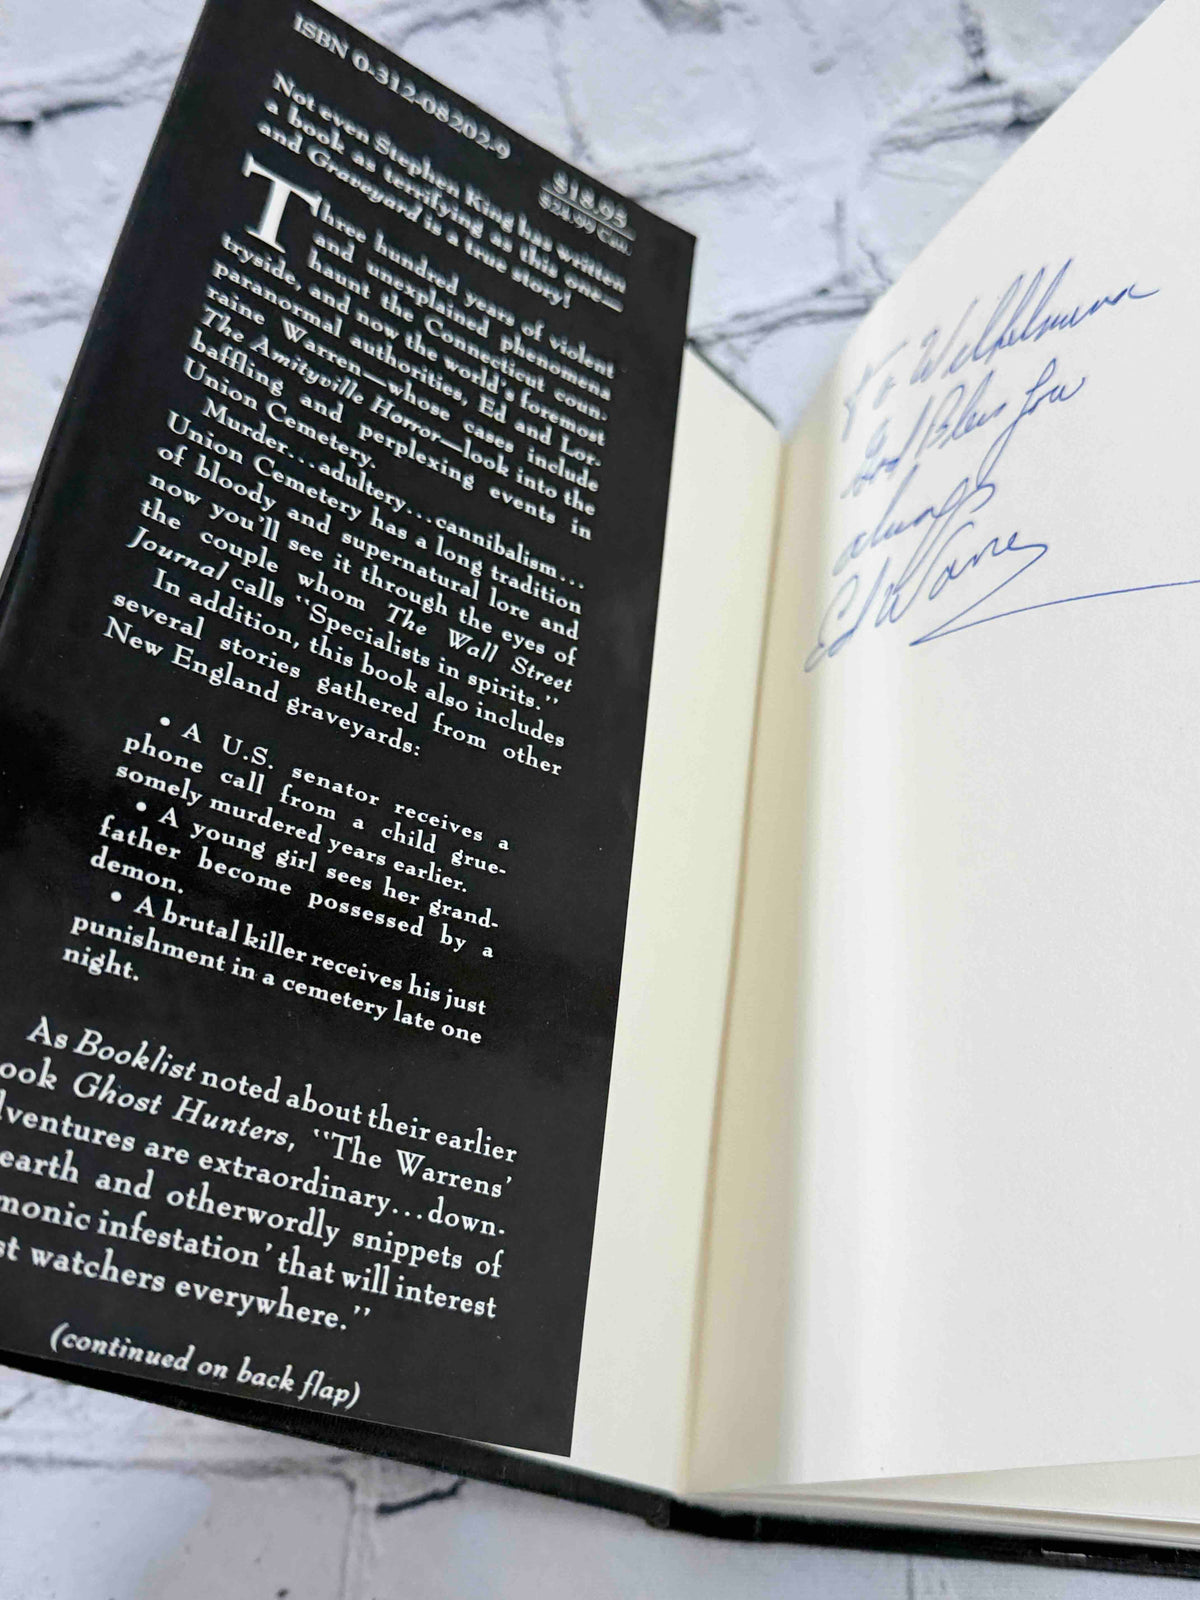 ISBN 0-312-08202-9
$18.95
$24.99 Can.
Not even Stephen King has written
a book as terrifying as this one—
and Graveyard is a true story!
Three hundred years of violent
and unexplained phenomena
haunt the Connecticut coun-
tryside, and now the world's foremost
paranormal authorities, Ed and Lor-
raine Warren—whose cases include
The Amityville Horror—look into the
baffling and perplexing events in
Union Cemetery.
Murder...adultery...cannibalism...
Union Cemetery has a long tradition
of bloody and supernatural lore and
now you'll see it through the eyes of
the couple whom The Wall Street
Journal calls "Specialists in spirits."
In addition, this book also includes
several stories gathered from other
New England graveyards:
• A U.S. senator receives a
phone call from a child grue-
somely murdered years earlier.
• A young girl sees her grand-
father become possessed by a
demon.
• A brutal killer receives his just
punishment in a cemetery late one
night.
As Booklist noted about their earlier
ook Ghost Hunters, "The Warrens'
lventures are extraordinary...down-
earth and otherwordly snippets of
monic infestation' that will interest
st watchers everywhere."
(continued on back flap)
To Wilhelmina
God Bless You
always
Ed Warren